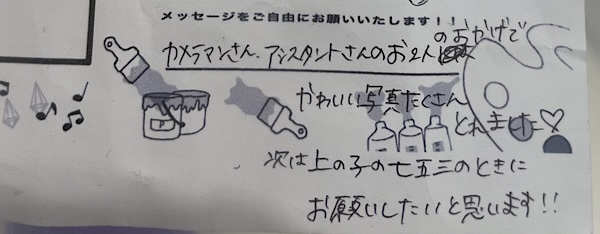 メッセージをご自由にお願いいたします！！
カメラマンさん、アシスタントさんのお2人のおかげで
かわいい写真たくさん
とれました♡
次は上の子の七五三のときに
お願いしたいと思います!!
P